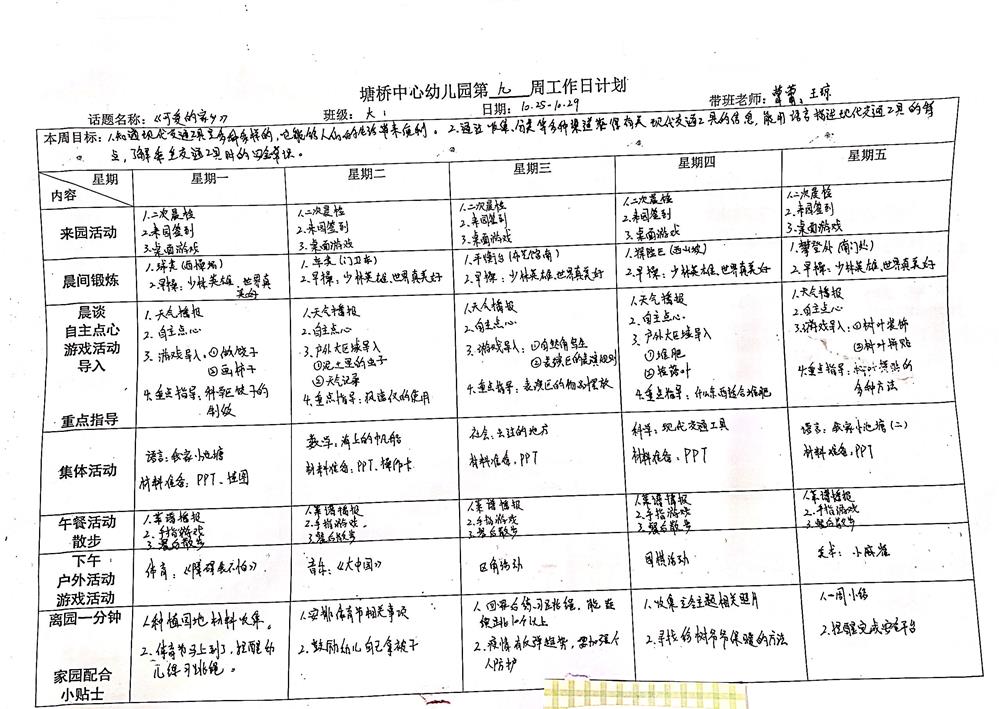 塘桥中心幼儿园第 九 周工作日计划
话题名称:《可爱的家乡》 班级: 大1 日期: 10.25-10.29 带班老师: 王琼
本周目标: 1.知道现代交通工具是多种多样的,它能给人们的生活带来便利。 2.通过收集、分类等多种渠道 有关现代交通工具的信息,能用语言描述现代交通工具的特
点,了解乘坐交通工具时的安全常识。
星期 内容 星期一 星期二 星期三 星期四 星期五
来园活动
1.二次晨检
2.来园签到
3.桌面游戏
1.二次晨检
2.来园签到
3.桌面游戏
1.二次晨检
2.来园签到
3.桌面游戏
1.二次晨检
2.来园签到
3.桌面游戏
1.二次晨检
2.来园签到
3.桌面游戏
晨间锻炼
1.球类(西操场)
2.早操:少林英雄、世界真
美好
1.车类(门卫东)
2.早操:少林英雄、世界真美好
1.平衡台
2.早操:少林英雄、世界真美好
1.探险区(西山坡)
2.早操:少林英雄、世界真美好
1.攀登架(南门处)
2.早操:少林英雄、世界真美好
晨谈
自主点心
游戏活动
导入
重点指导
1.天气播报
2.自主点心
3.游戏导入:①做饺子
②画柿子
4.重点指导:科学区饺子的
制作
1.天气播报
2.自主点心
3.户外大区域导入
①泥土里的虫子
②天气记录
4.重点指导: 的使用
1.天气播报
2.自主点心
3.游戏导入:①自然角写生
②表演区的表演规则
4.重点指导:表演区的物品摆放
1.天气播报
2.自主点心
3.户外大区域导入
①堆肥
4.重点指导:什么东西适合堆肥
1.天气播报
2.自主点心
3.游戏导入:①树叶装饰
②树叶拼贴
4.重点指导:树叶拼贴的
多种方法
集体活动
语言:我家小池塘
材料准备:PPT、挂图
数学:海上的帆船
材料准备:PPT、操作卡
社会:去过的地方
材料准备:PPT
科学:现代交通工具
材料准备:PPT
语言:我家小池塘(二)
材料准备:PPT
午餐活动
散步
1.菜谱播报
2.手指游戏
3.餐后散步
1.菜谱播报
2.手指游戏
3.餐后散步
1.菜谱播报
2.手指游戏
3.餐后散步
1.菜谱播报
2.手指游戏
3.餐后散步
1.菜谱播报
2.手指游戏
3.餐后散步
下午
户外活动
游戏活动
体育:《障碍 》
音乐:《大中国》
区角活动
围棋活动
美术:小麻雀
离园一分钟
家园配合
小贴士
1.种植园地材料收集。
2.体育节马上到了,提醒幼
儿练习跳绳。
1.安排体育节相关事项
2.鼓励幼儿自己叠被子
1.回家后练习跳绳,能连
续跳10个以上
2.疫情有反弹趋势,要加强个
人防护
1.收集主题相关照片
2.寻找给树爷爷保暖的方法
1.一周小结
2.提醒完成安全平台